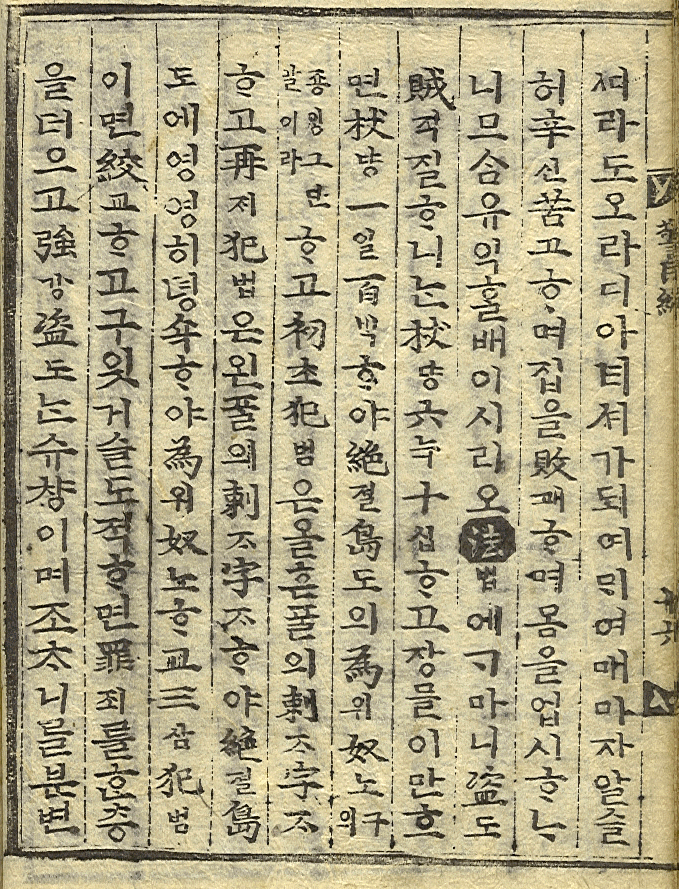 셔라도오라디아톄져가되여믜여매마자알슬
허辛신苦고ᄒᆞ며집을敗패ᄒᆞ며몸을업시ᄒᆞᄂ
니므슴유익홀배이시리오法법에ᄀᆞ마니盜도
賊적질ᄒᆞ니ᄂᆞᆫ杖댱六뉵十십ᄒᆞ고장믈이만ᄒᆞ
면杖댱一일百ᄇᆡᆨᄒᆞ야絶졀島도의爲위奴노구의
죵이라ᄒᆞ고初초犯범은올ᄒᆞᆫᄑᆞᆯ의刺ᄌᆞ字ᄌᆞ
ᄒᆞ고再ᄌᆡ犯범은왼ᄑᆞᆯ의刺ᄌᆞ字ᄌᆞᄒᆞ야絶졀島
도에영영히뎡쇽ᄒᆞ야爲위奴노ᄒᆞ고三삼犯범
이면絞교ᄒᆞ고구윗거슬도적ᄒᆞ면罪죄ᄅᆞᆯᄒᆞᆫ층
을더으고強강盜도ᄂᆞᆫ슈챵이며조ᄎᆞ니ᄅᆞᆯ분변